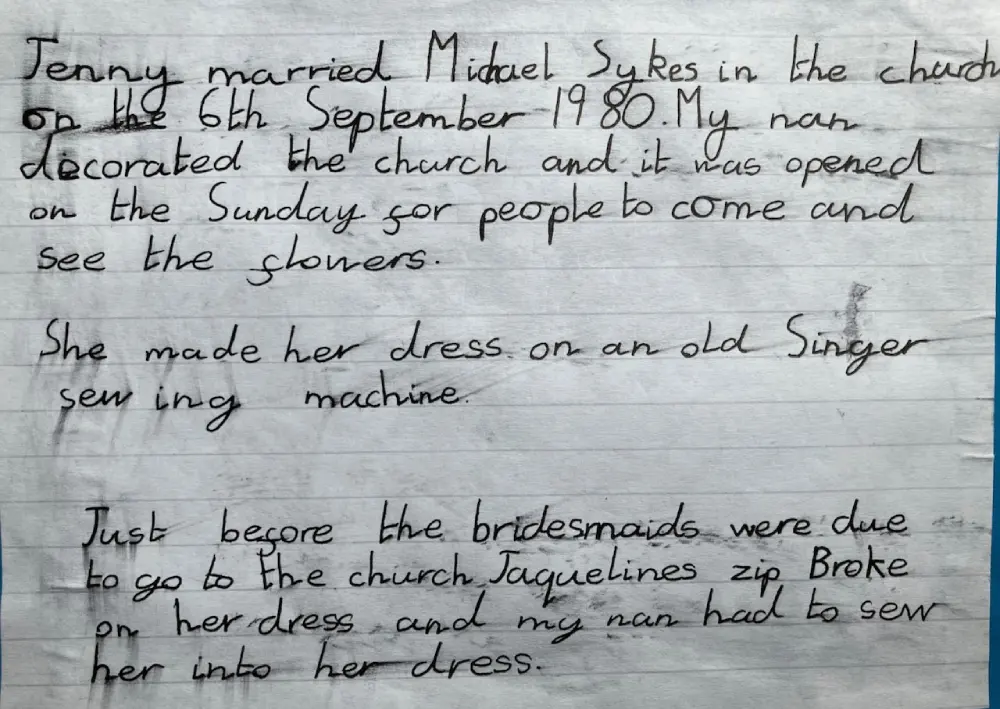 Jenny married Michael Sykes in the church
on the 6th September 1980. My nan
decorated the church and it was opened
on the Sunday for people to come and
see the flowers.
She made her dress on an old Singer
sewing machine.
Just before the bridesmaids were due
to go to the church Jaquelines zip Broke
on her dress and my nan had to sew
her into her dress.